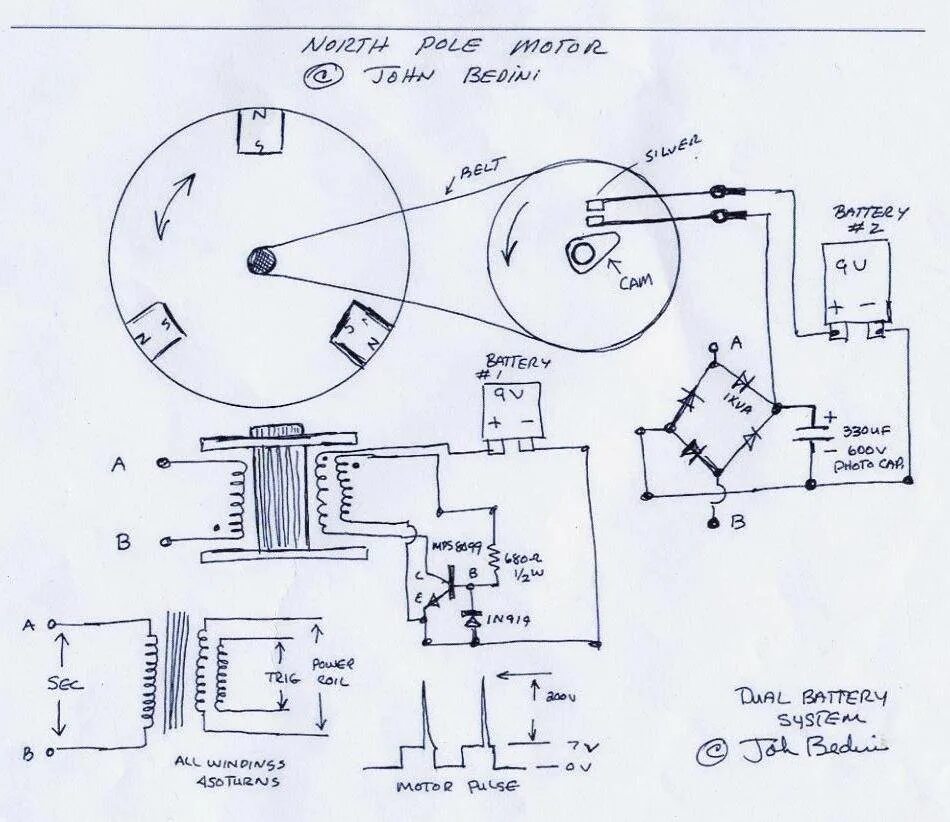 NORTH POLE MOTOR
© JOHN BEDINI
N
S
BELT
SILVER
CAM
BATTERY
#2
9V
+ -
S
N
S
N
BATTERY
#1
9V
+ -
A
1KVA
+
330UF
- 600V
PHOTO CAP.
B
A
B
MPS8099
680Ω
1/2W
C
B
E
1N914
A
SEC
B
TRIG
POWER
COIL
ALL WINDINGS
450TURNS
200V
7V
0V
MOTOR PULSE
DUAL BATTERY
SYSTEM
© John Bedini